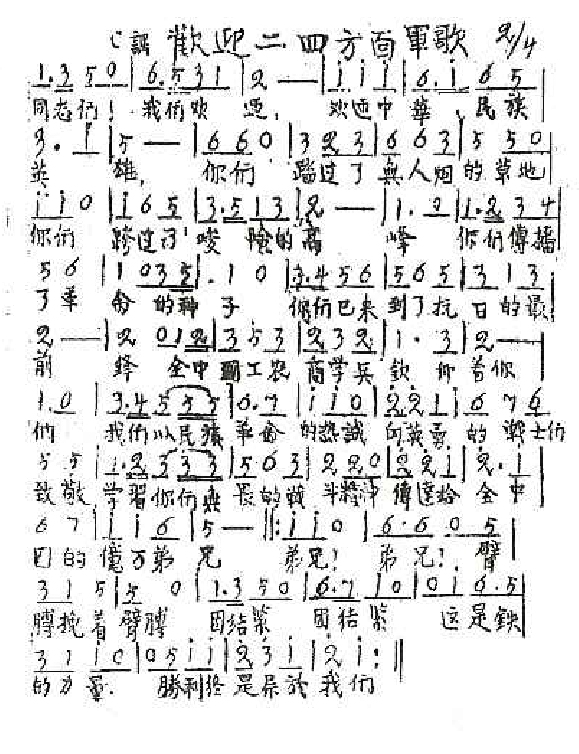 C調 歡迎二四方面軍歌 2/4
1.3 5 0 | 6.5 3 1 | 2 — | i i i | 6. i 6 5 |
同志們! 我們欢迎, 欢迎中華 民族
3. 1 | 5 — | 6 6 0 | 3 2 3 | 6 6 3 | 5 5 0 |
英雄, 你们 踏过了無人烟的草地
i i 0 | i 6 5 | 3.5 1 3 | 2 — | 1. 2 | 1.2 3 4 |
你们 跨过了 峻险的高峰 你们傳播
5 6 | 1 0 3 5 | . 1 0 | 3.4 5 6 | 5 6 5 | 3 1 3 |
了革命的种子 你们已来到了抗日的最
2 — | 2 0 1 2 | 3 5 3 | 2 3 2 | 1 . 3 | 2 — |
前鋒 全中國工农商学兵欽仰着你
1. 0 | 3.4 5 5 5 | 6. 7 | i i 0 | 2 2 1 | 6 7 6
们 我们以民族革命的热誠 向英勇的戰士们
5 5 | 1.2 3 3 3 | 5 0 3 | 2 2 0 | 2 2 i | 2. 1 |
致敬 学習你们 最的戰斗精神 傳達给全中
6 7 | i i 6 | 5 — ||: i i 0 | 6.6 0 5 |
囯的億万弟兄 弟兄! 弟兄! 臂
3 1 5 | 5 0 | 1.3 5 0 | 6.7 i 0 | 0 i 6.5 |
膊挽着臂膊 团结紧 团结紧 这是鉄
3 1 i 0 | 0 5 i i | 2 3 i | 2 i : ||
的力量. 勝利终是屬於我们